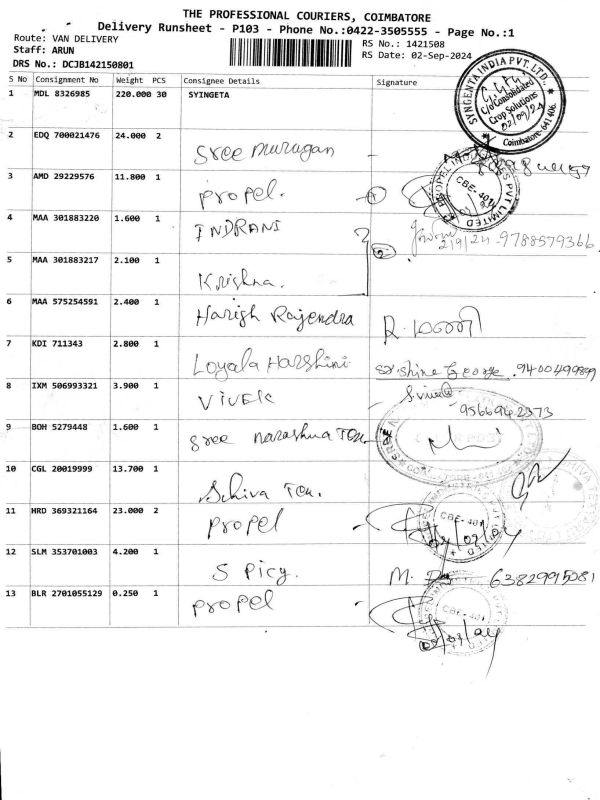 THE PROFESSIONAL COURIERS, COIMBATORE
Delivery Runsheet - P103 - Phone No.:0422-3505555 - Page No.:1
Route: VAN DELIVERY
RS No.: 1421508
Staff: ARUN
RS Date: 02-Sep-2024
DRS No.: DCJB142150801
S No Consignment No Weight PCS Consignee Details Signature
1 MDL 8326985 220.000 30 SYINGETA
SYNGENTA INDIA PVT. LTD.
C/o Consolidated
Crop Solutions
02/09/24
Coimbatore-641 406.
2 EDQ 700021476 24.000 2 Sree murugan
3 AMD 29229576 11.800 1 Propel. 1
CBE-401
4 MAA 301883220 1.600 1 INDRANI 2
2/9/24 9788579366
5 MAA 301883217 2.100 1 Krishna.
6 MAA 575254591 2.400 1 Harish Rajendra R.
7 KDI 711343 2.800 1 Loyala Harshini Sr. Shine George. 9400499899
8 IXM 506993321 3.900 1 VIVEK
9566942373
9 BOH 5279448 1.600 1 Sree
10 CGL 20019999 13.700 1 Schiva Tex.
11 HRD 369321164 23.000 2 Propel CBE-401
12 SLM 353701003 4.200 1 SPicy. M. 6382995081
13 BLR 2701055129 0.250 1 Propel CBE-401